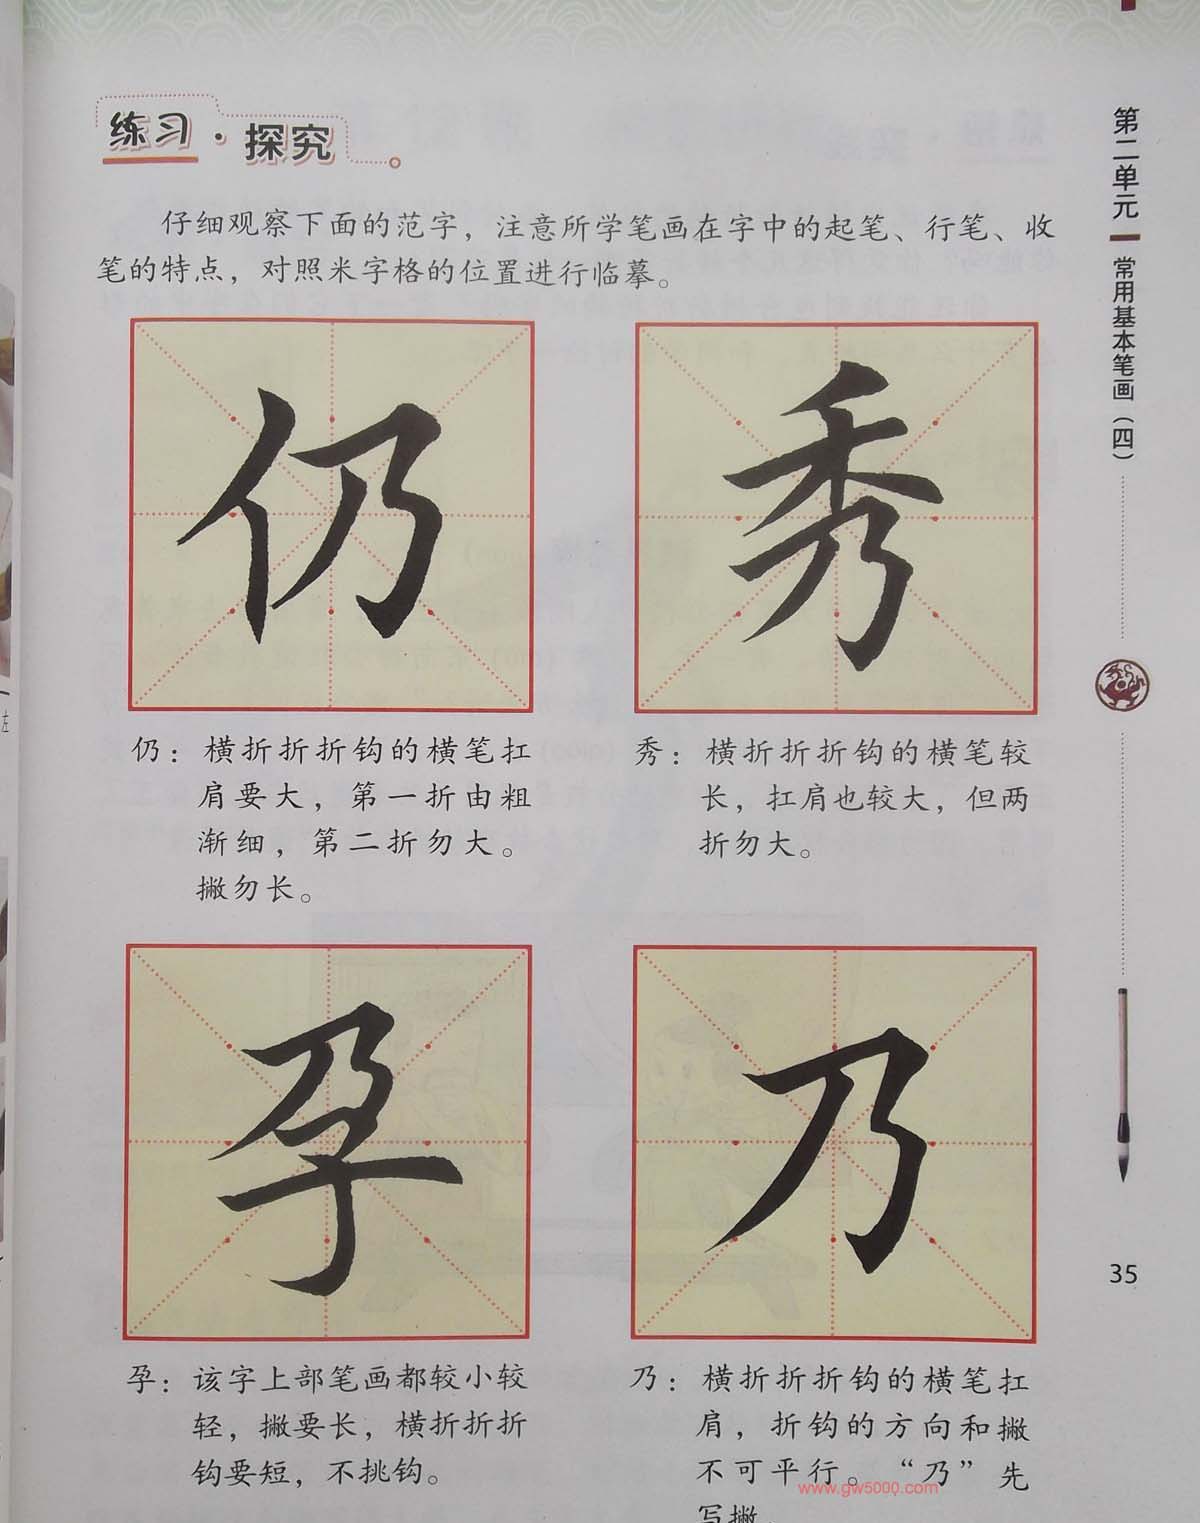 练习·探究
仔细观察下面的范字，注意所学笔画在字中的起笔、行笔、收
笔的特点，对照米字格的位置进行临摹。
仍
秀
仍：横折折折钩的横笔扛
肩要大，第一折由粗
渐细，第二折勿大。
撇勿长。
秀：横折折折钩的横笔较
长，扛肩也较大，但两
折勿大。
孕
乃
孕：该字上部笔画都较小较
轻，撇要长，横折折折
钩要短，不挑钩。
乃：横折折折钩的横笔扛
肩，折钩的方向和撇
不可平行。“乃”先
写撇
www.gw5000.com
第二单元
常用基本笔画（四）
35
左